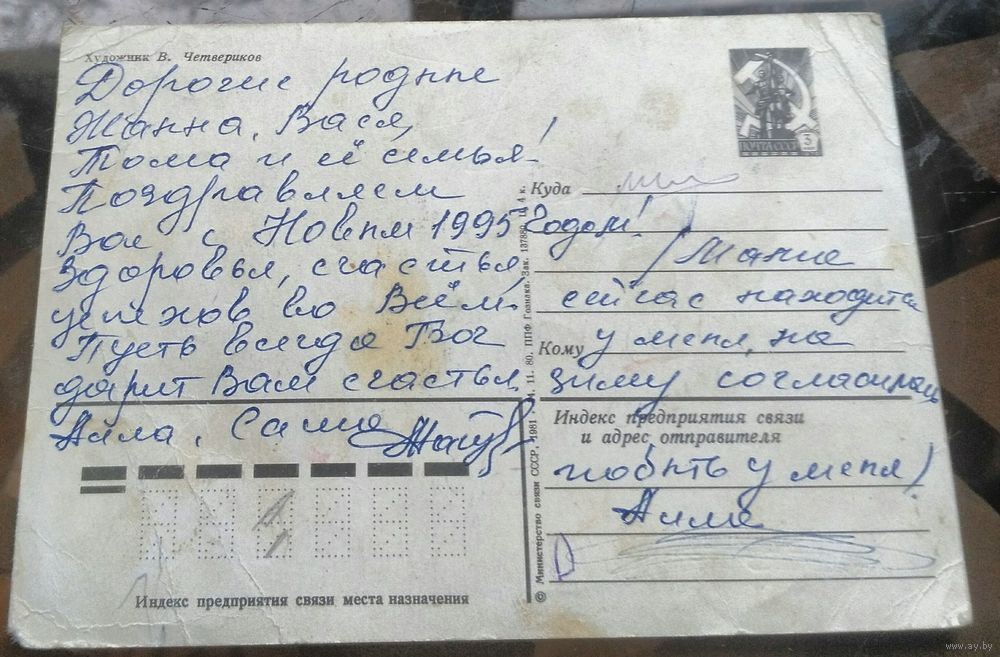 Художник В. Четвериков
Дорогие родные
Жанна, Вася,
Тома и её семья!
Поздравляем
Вас с Новым 1995 Годом!
Здоровья, счастья,
успехов во Всём.
Пусть всегда Бог
дарит Вам счастья,
Алла, Саша
ПОЧТА СССР
3
Куда
(Мама
сейчас находится
Кому у меня, на
зиму согласилась
Индекс предприятия связи
и адрес отправителя
побыть у меня)
Алла
Индекс предприятия связи места назначения
© Министерство связи СССР, 1981. 11. 80. ППФ Гознака. Зак. 4 к.
www.ay.by